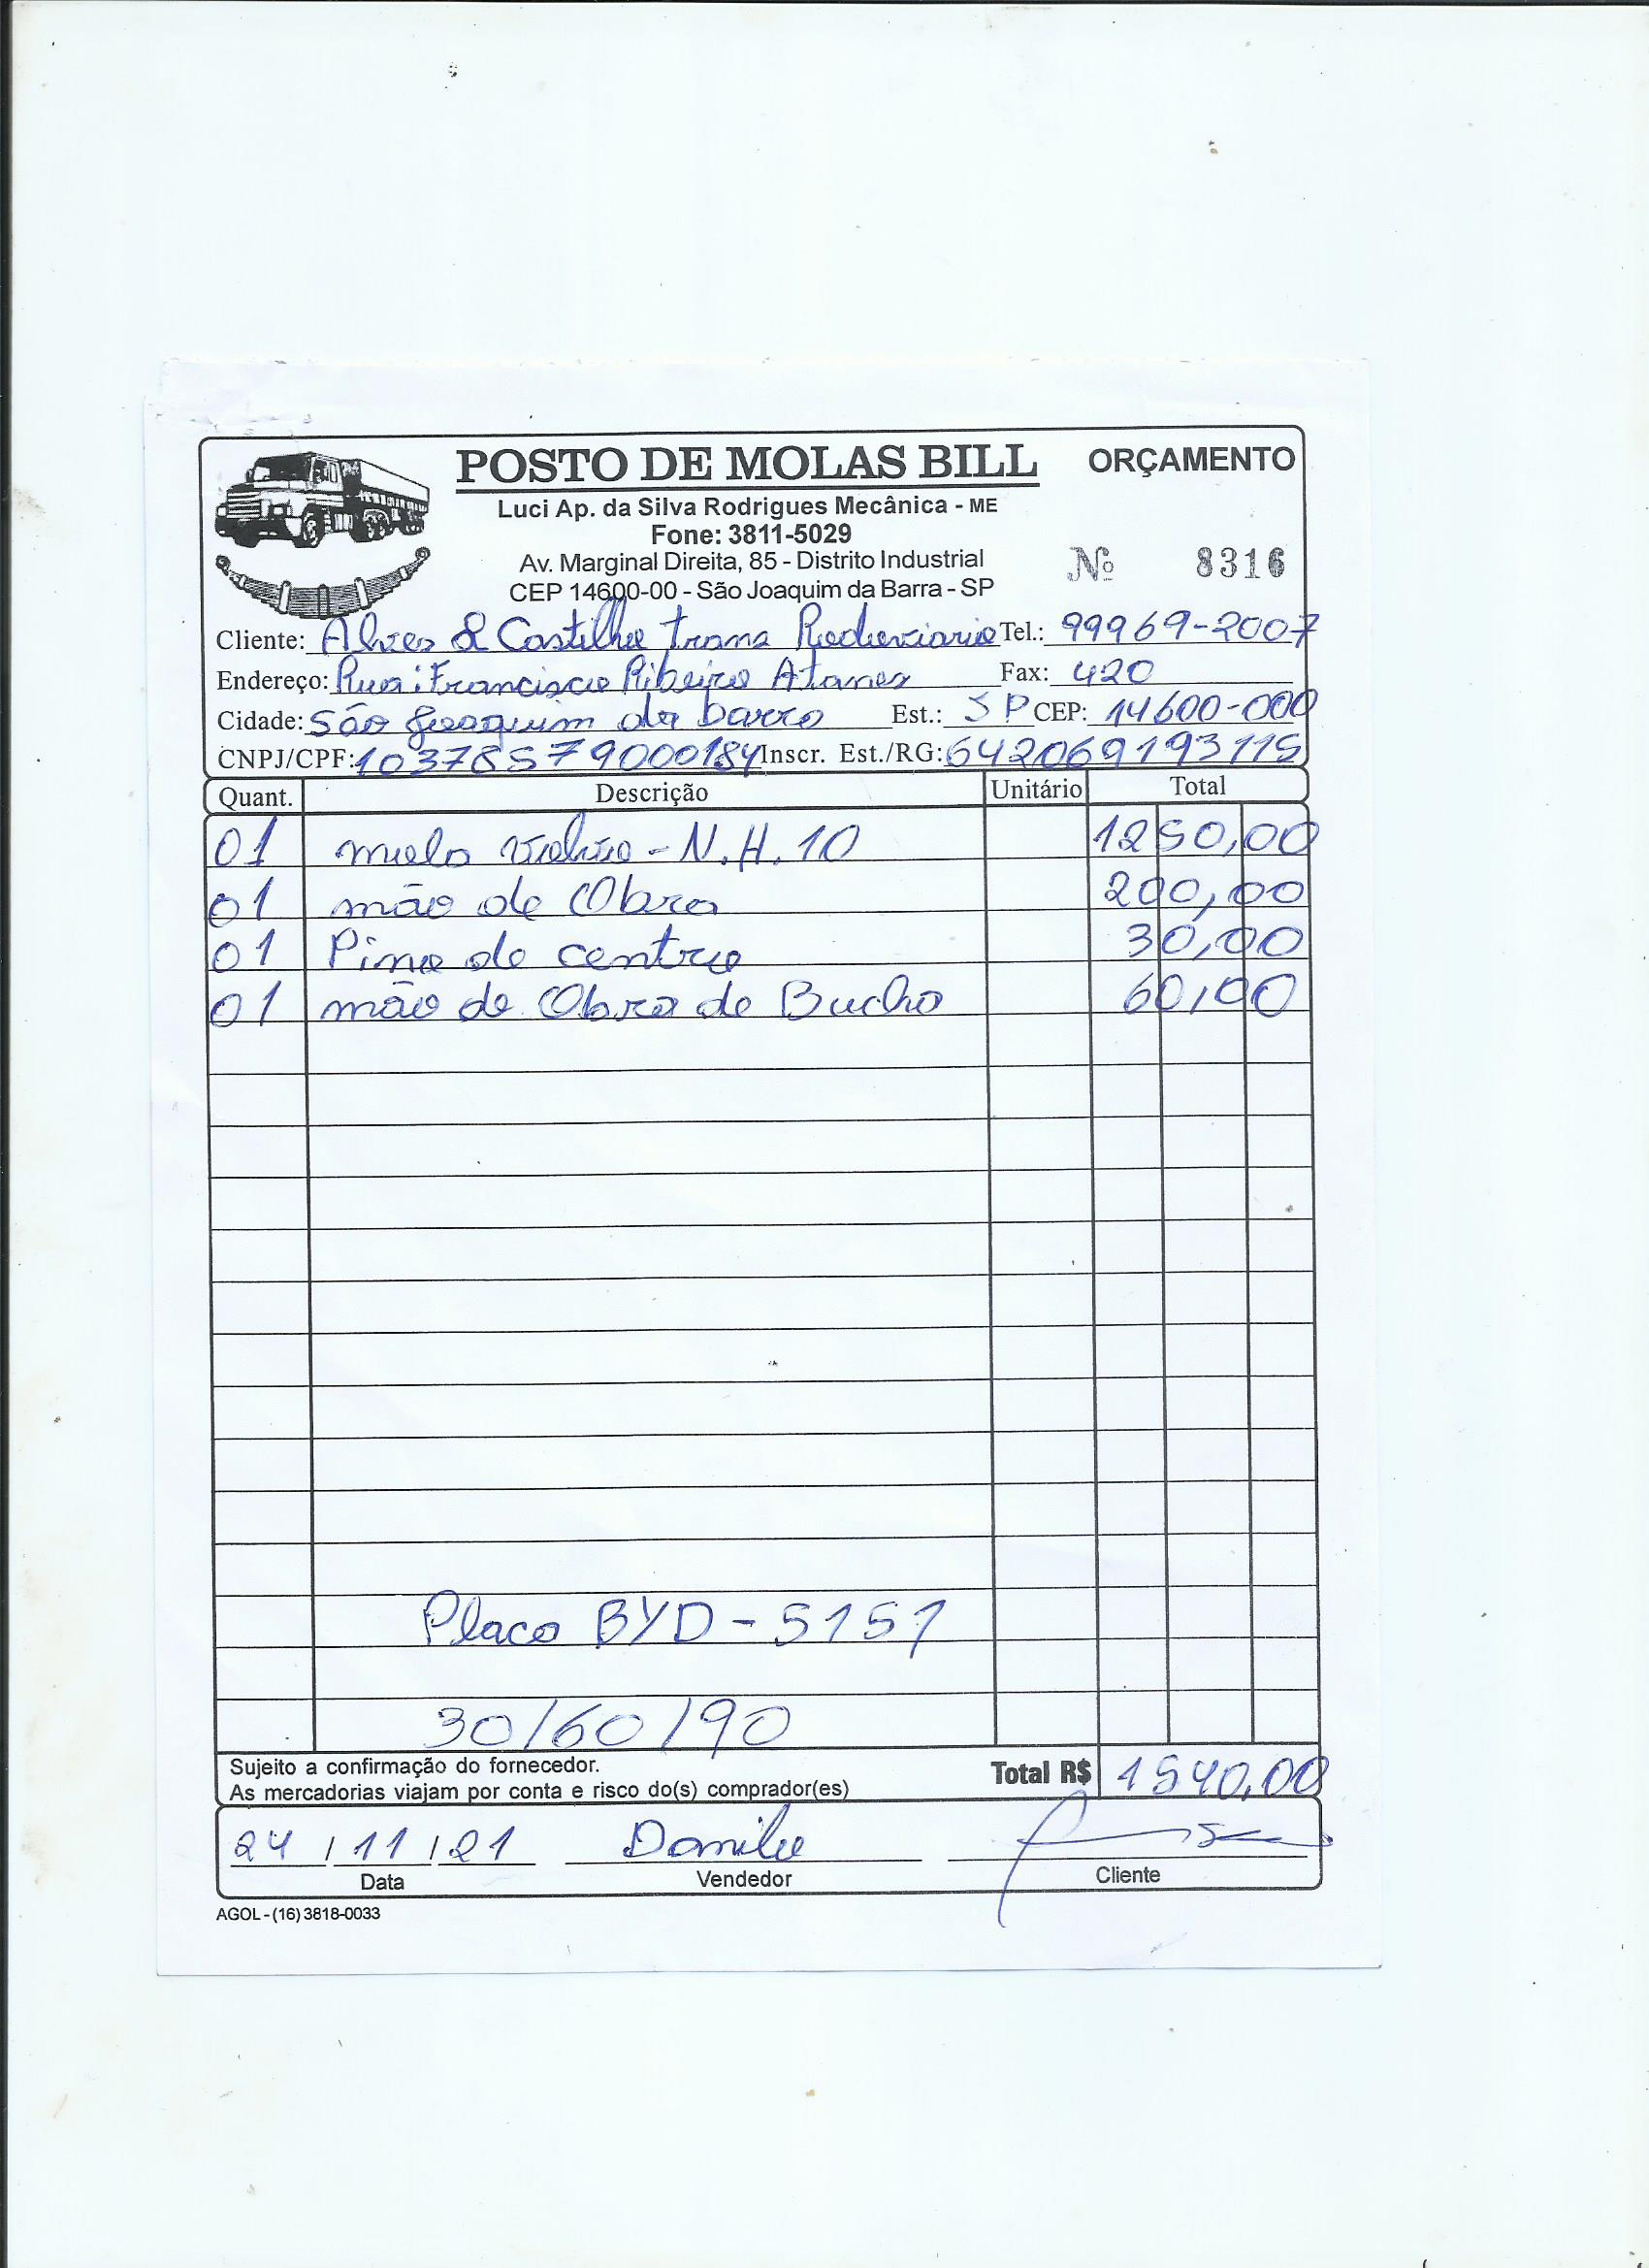 POSTO DE MOLAS BILL ORÇAMENTO
Luci Ap. da Silva Rodrigues Mecânica - ME
Fone: 3811-5029
Av. Marginal Direita, 85 - Distrito Industrial
Nº 8316
CEP 14600-00 - São Joaquim da Barra - SP
Cliente: Alves & Castilho trans Rodoviario Tel.: 99969-2007
Endereço: Rua: Francisco Ribeiro Fax: 420
Cidade: São Joaquim da barra Est.: SP CEP: 14600-000
CNPJ/CPF: 10378579000184 Inscr. Est./RG: 642069193115
Quant. Descrição Unitário Total
01 mola - N.H.10 1250,00
01 mão de Obra 200,00
01 Pino de centro 30,00
01 mão de Obra de Bucha 60,00
Placa BYD - 5151
30/60/90
Sujeito a confirmação do fornecedor.
As mercadorias viajam por conta e risco do(s) comprador(es)
Total R$ 1540,00
24 / 11 / 21 Danilo
Data Vendedor Cliente
AGOL - (16) 3818-0033